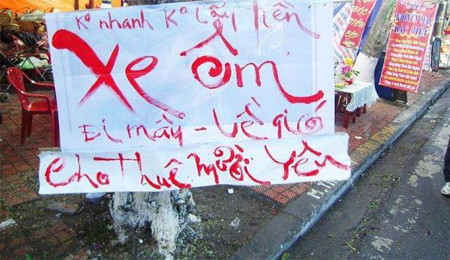 Ko nhanh Ko lấy tiền
Xe ôm
Đi mây - Về gió
Cho Thuê người yêu